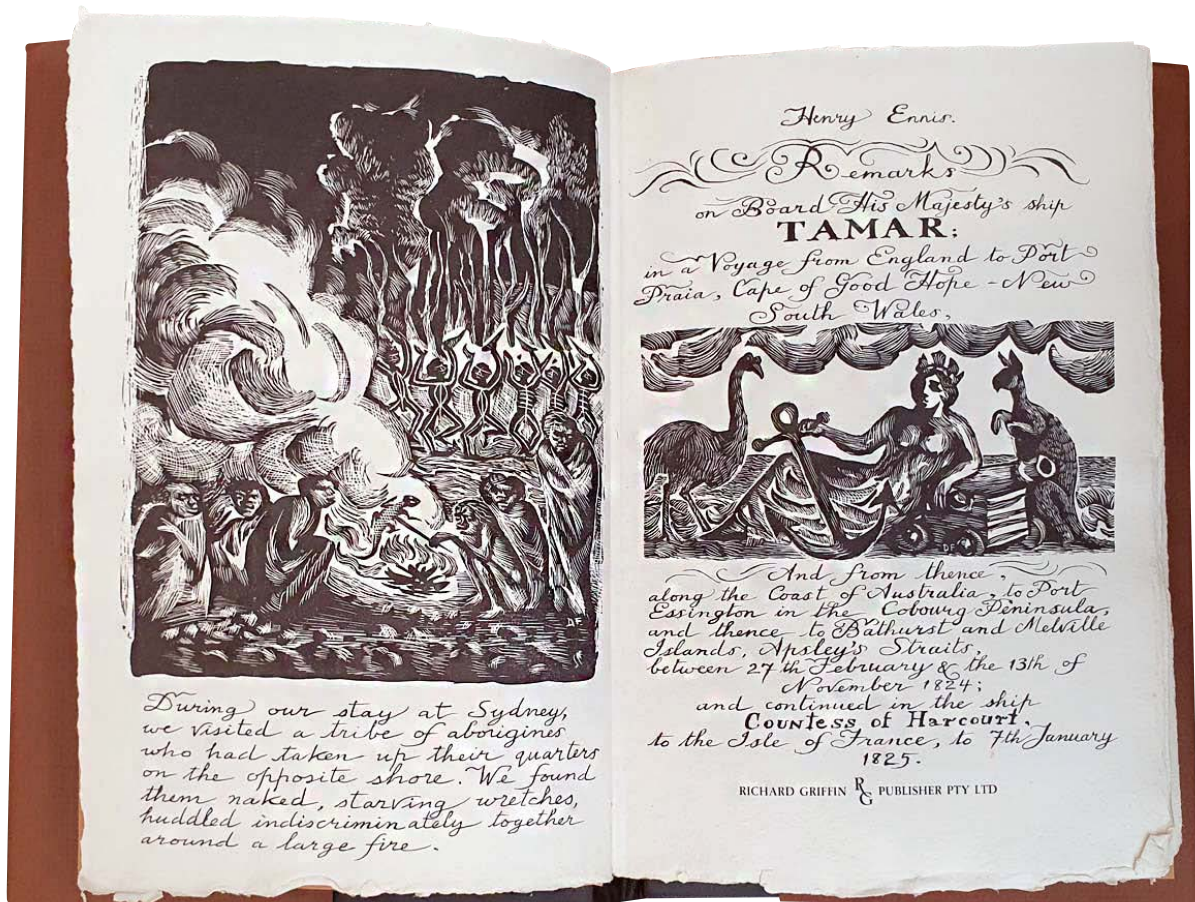 During our stay at Sydney,
we visited a tribe of aborigines
who had taken up their quarters
on the opposite shore. We found
them naked, starving wretches,
huddled indiscriminately together
around a large fire.
Henry Ennis.
Remarks
on Board His Majesty's ship
TAMAR;
in a Voyage from England to Port
Praia, Cape of Good Hope - New
South Wales,
And from thence,
along the Coast of Australia, to Port
Essington in the Cobourg Peninsula,
and thence to Bathurst and Melville
Islands, Apsley's Straits,
between 27th February & the 13th of
November 1824;
and continued in the ship
Countess of Harcourt,
to the Isle of France, to 7th January
1825.
RICHARD GRIFFIN RG PUBLISHER PTY LTD